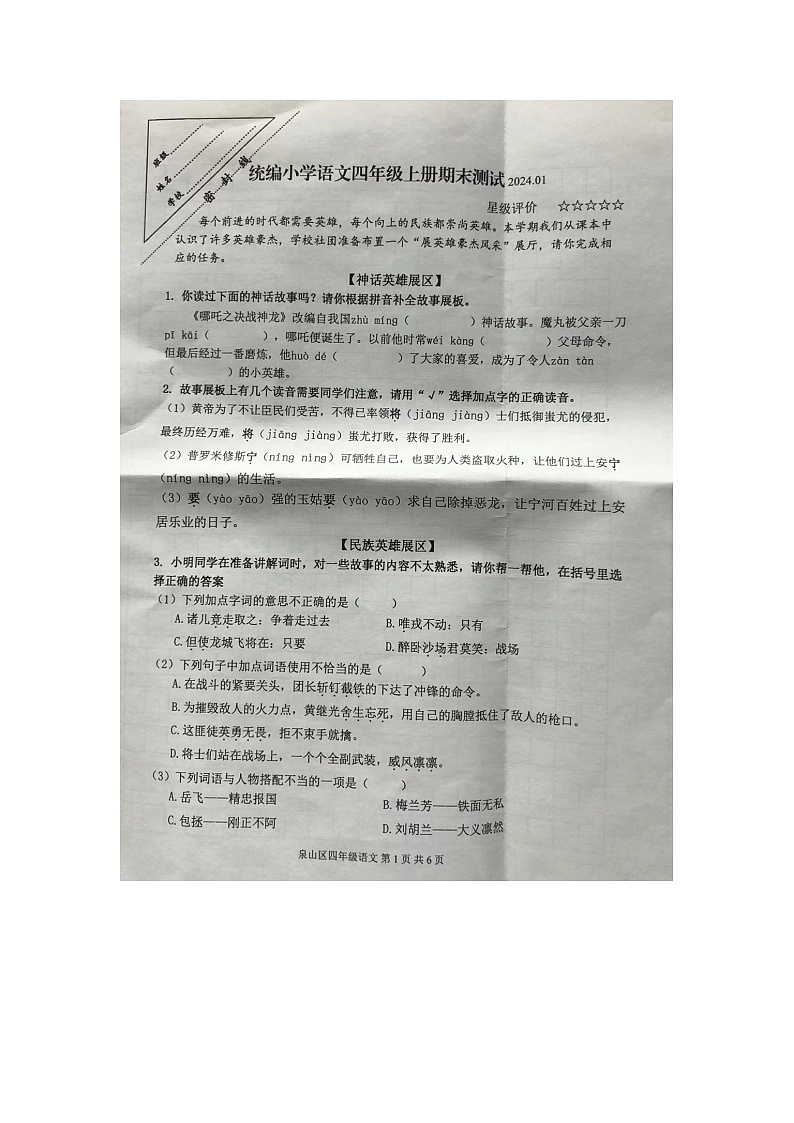 班级
姓名
学校
密 封 线
统编小学语文四年级上册期末测试 2024.01
星级评价 ☆☆☆☆☆
每个前进的时代都需要英雄，每个向上的民族都崇尚英雄。本学期我们从课本中
认识了许多英雄豪杰，学校社团准备布置一个“展英雄豪杰风采”展厅，请你完成相
应的任务。
【神话英雄展区】
1. 你读过下面的神话故事吗？请你根据拼音补全故事展板。
《哪吒之决战神龙》改编自我国zhù míng（ ）神话故事。魔丸被父亲一刀
pī kāi（ ），哪吒便诞生了。以前他时常wéi kàng（ ）父母命令，
但最后经过一番磨炼，他huò dé（ ）了大家的喜爱，成为了令人zàn tàn
（ ）的小英雄。
2. 故事展板上有几个读音需要同学们注意，请用“√”选择加点字的正确读音。
（1）黄帝为了不让臣民们受苦，不得已率领将（jiāng jiàng）士们抵御蚩尤的侵犯，
最终历经万难，将（jiāng jiàng）蚩尤打败，获得了胜利。
（2）普罗米修斯宁（níng nìng）可牺牲自己，也要为人类盗取火种，让他们过上安宁
（níng nìng）的生活。
（3）要（yào yāo）强的玉姑要（yào yāo）求自己除掉恶龙，让宁河百姓过上安
居乐业的日子。
【民族英雄展区】
3. 小明同学在准备讲解词时，对一些故事的内容不太熟悉，请你帮一帮他，在括号里选
择正确的答案
（1）下列加点字词的意思不正确的是（ ）
A.诸儿竞走取之：争着走过去 B.唯戎不动：只有
C.但使龙城飞将在：只要 D.醉卧沙场君莫笑：战场
（2）下列句子中加点词语使用不恰当的是（ ）
A.在战斗的紧要关头，团长斩钉截铁的下达了冲锋的命令。
B.为摧毁敌人的火力点，黄继光舍生忘死，用自己的胸膛抵住了敌人的枪口。
C.这匪徒英勇无畏，拒不束手就擒。
D.将士们站在战场上，一个个全副武装，威风凛凛。
（3）下列词语与人物搭配不当的一项是（ ）
A.岳飞——精忠报国 B.梅兰芳——铁面无私
C.包拯——刚正不阿 D.刘胡兰——大义凛然
泉山区四年级语文 第 1 页 共 6 页